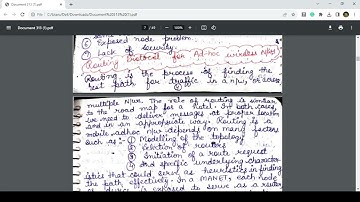 Document 313 (1).pdf
File | C:/Users/Dell/Downloads/Document%20313%20(1).pdf
Document 313 (1).pdf
7
Exposed node problem.
Lack of security.
Routing Protocol for Ad-hoc wireless N/w
Routing is the process of finding the
best path for traffic in a n/w, or across
multiple N/ws. The role of routing is similar
to the road map for a hotel. In both cases,
we need to deliver messages at proper location
and in an appropriate way. Routing in a
mobile ad-hoc n/w depends on many factors
such as :- ① Modelling of the topology
② Selection of routers
③ Initiation of a route request
④ And specific underlying character-
istics that could serve as heuristics in finding
the path effectively. In a MANET, each node
or device is expected to serve as a router